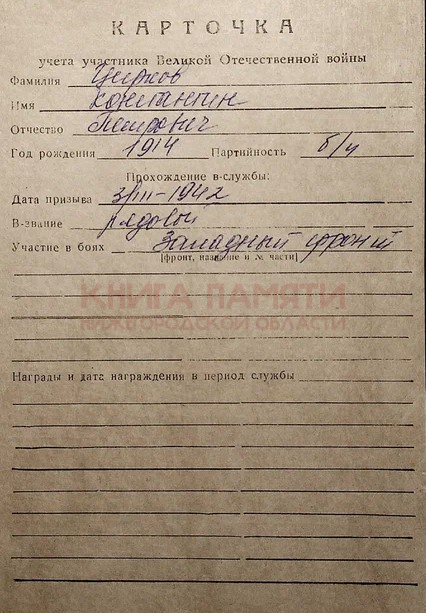 КАРТОЧКА
учета участника Великой Отечественной войны
Фамилия Цирков
Имя Константин
Отчество Петрович
Год рождения 1914 Партийность б/п
Прохождение в-службы:
Дата призыва 3/III-1942
В-звание рядовой
Участие в боях Западный фронт
[фронт, название и № части]
КНИГА ПАМЯТИ
НИЖЕГОРОДСКОЙ ОБЛАСТИ
Награды и дата награждения в период службы